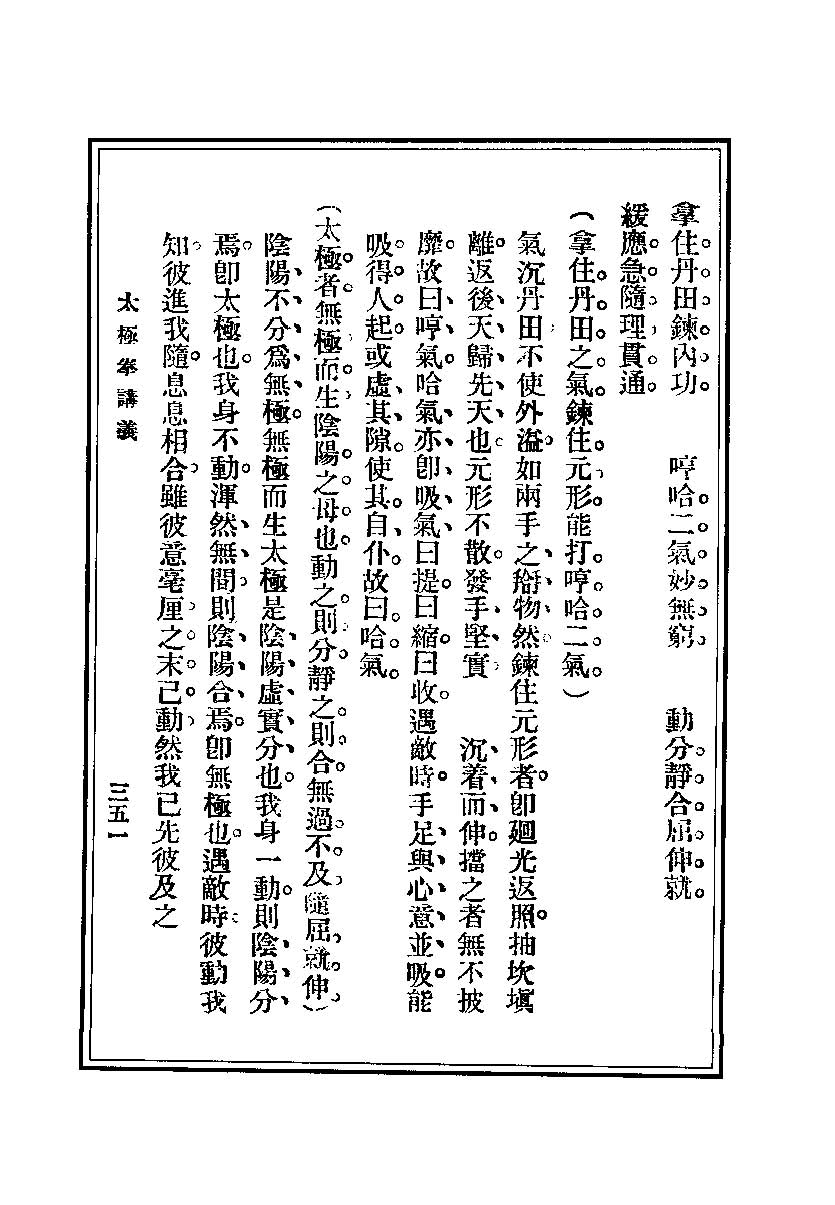 拿住丹田鍊內功　哼哈二氣妙無窮　動分靜合屈伸就
緩應急隨理貫通
（拿住丹田之氣鍊住元形能打哼哈二氣。）
氣沉丹田不使外溢如兩手之搿物然鍊住元形者卽廻光返照。抽坎塡
離。返後天歸先天也元形不散。發手堅實　沉着而伸。擋之者無不披
靡。故曰哼氣。哈氣亦卽吸氣、曰提。曰縮。曰收。遇敵時。手足與心意並吸。能
吸得人起。或虛其隙。使其自仆。故曰哈氣。
（太極者無極而生陰陽之母也。動之則分。靜之則合。無過不及。隨屈就伸）
陰陽不分爲無極。無極而生太極是陰陽虛實分也。我身一動。則陰陽分
焉。卽太極也。我身不動。渾然無間則陰陽合焉。卽無極也。遇敵時彼動我
知彼進我隨。息息相合雖彼意毫厘之末已動然我已先彼及之
太極拳講義
三五一